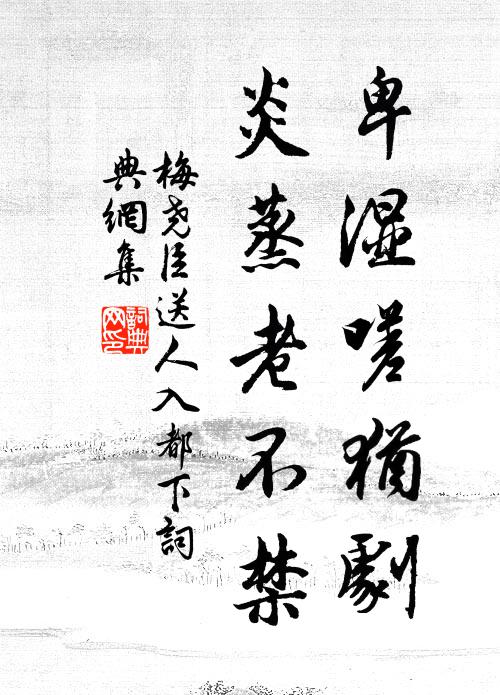 卑濕嗟猶劇
炎蒸老不禁
梅堯臣送人入都下詞
典網集
詞典
网印